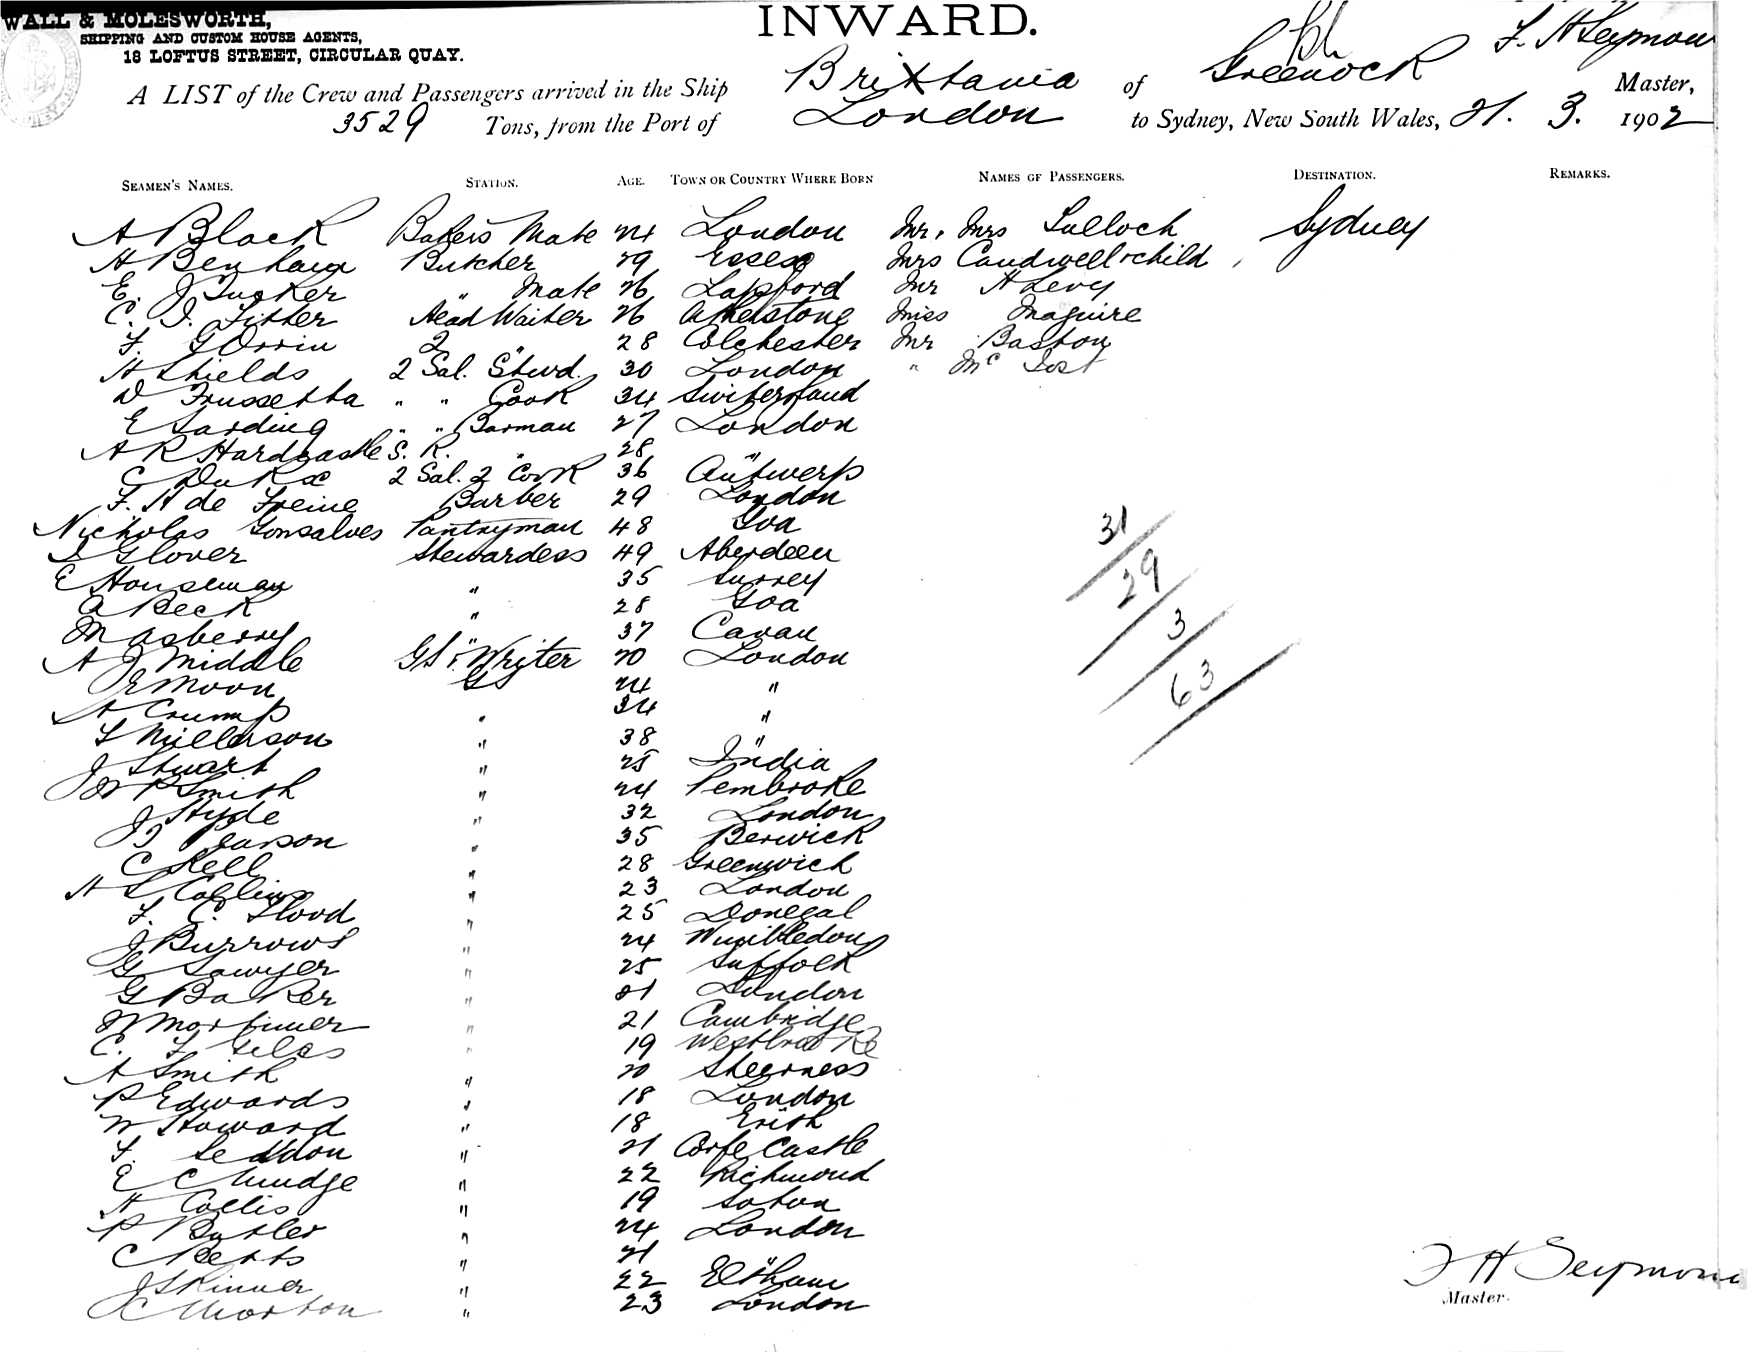 WALL & MOLESWORTH,
SHIPPING AND CUSTOM HOUSE AGENTS,
18 LOFTUS STREET, CIRCULAR QUAY.
INWARD.
A LIST of the Crew and Passengers arrived in the Ship Britannia of Greenock F. H Seymour Master,
3529 Tons, from the Port of London to Sydney, New South Wales, 21. 3. 1902
SEAMEN'S NAMES. STATION. AGE. TOWN OR COUNTRY WHERE BORN NAMES OF PASSENGERS. DESTINATION. REMARKS.
A Black Bakers Mate 24 London Mr. Mrs Tulloch Sydney
H Benham Butcher 29 Essex Mrs Caudwell & child
E. J Tucker " Mate 26 Lapford Mr H Levy
C. J. Fisher Head Waiter 26 Atherstone Miss Maguire
F. G Orrin 2 " 28 Colchester Mr Baston
H Shields 2 Sal. Stwd. 30 London "
D " " Cook 34 Switerland
E " " Barman 27 London
A R Hardcastle S. R. 28 "
C 2 Sal. 2 Cook 36 Antwerp
F. H de Freine Barber 29 London
Nicholas Gonsalves Pantryman 48 Goa
Glover Stewardess 49 Aberdeen
E Houseman " 35 Surrey
A Beck " 28 Goa
M Asberry " 37 Cavan
A J Middle GS & Writer 20 London
E Moon GS 24 "
H Crump " 34 "
Millerson " 38 "
J Stuart " 25 India
W P Smith " 24 Pembroke
J Hyde " 32 London
J Pearson " 35 Berwick
C Kell " 28 Greenwich
H L Collins " 23 London
F. C. Flood " 25 Donegal
J Burrows " 24 Wimbledon
G Sawyer " 25 Suffolk
G Baker " 21 London
W Mortimer " 21 Cambridge
C. F Giles " 19
A Smith " 20 Sheerness
P Edwards " 18 London
W Howard " 18 Erith
F. Seddon " 21 Corfe Castle
E C Mudge " 22 Richmond
H Collis " 19 Soton
P Butler " 24 London
C Betts " 21 "
J Skinner " 22 Eltham
C Morton " 23 London
31
29
3
63
F H Seymour
Master.